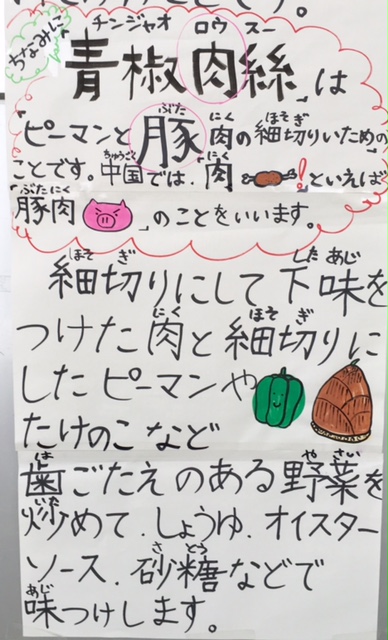 です。
ちなみに
チンジャオ ロウ スー
青椒肉絲は
ぶた にく ほそ ぎ
「ピーマンと豚肉の細切りいため」の
ちゅうごく にく
ことです。中国では「肉!」といえば
ぶた にく
「豚肉」のことをいいます。
ほそ ぎ した あじ
細切りにして下味を
にく ほそ ぎ
つけた肉と細切りに
したピーマンや
たけのこなど
は や さい
歯ごたえのある野菜を
いた
炒めて、しょうゆ、オイスター
さ とう
ソース、砂糖などで
あじ
味つけします。